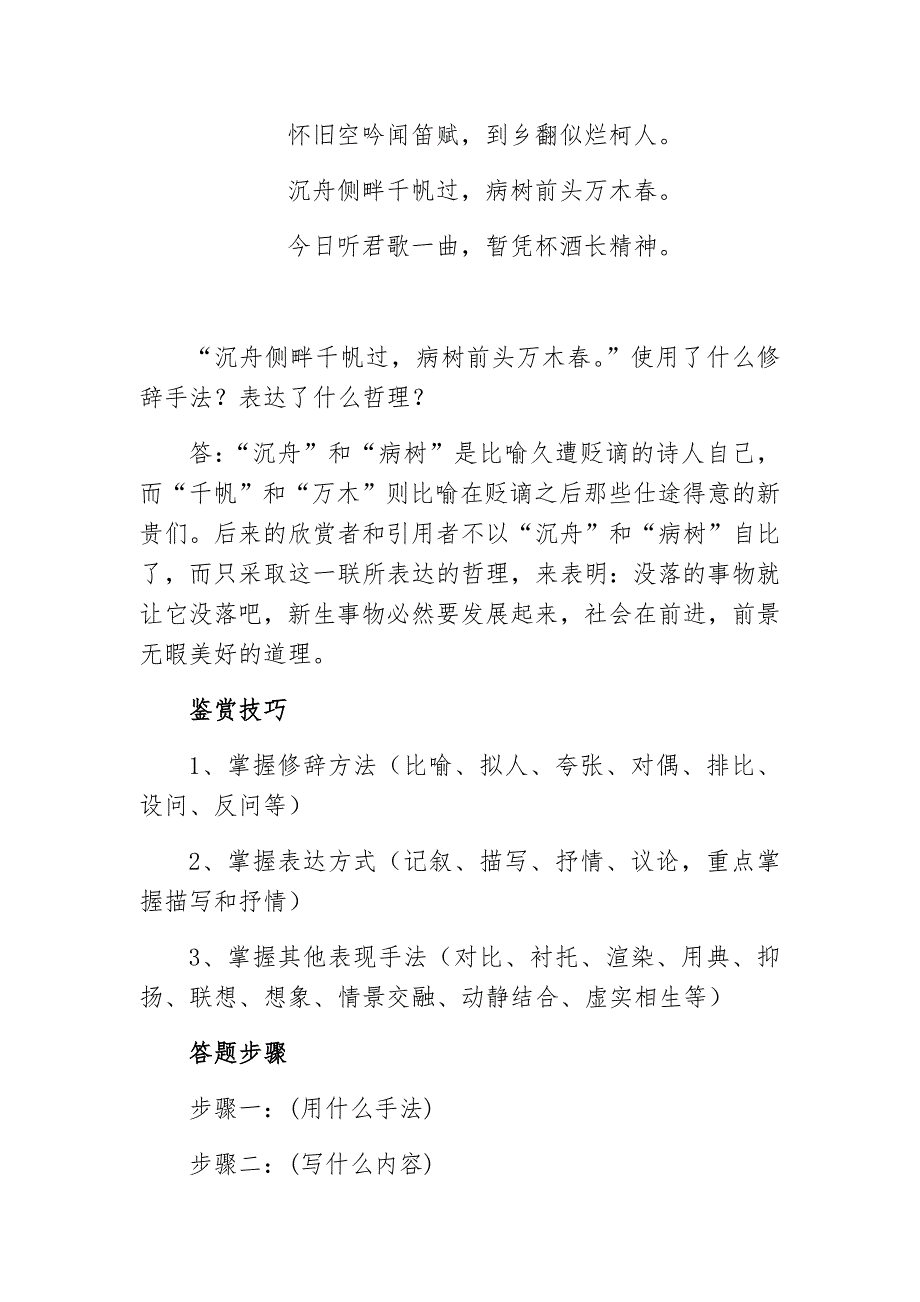 怀旧空吟闻笛赋，到乡翻似烂柯人。
沉舟侧畔千帆过，病树前头万木春。
今日听君歌一曲，暂凭杯酒长精神。
“沉舟侧畔千帆过，病树前头万木春。”使用了什么修
辞手法？表达了什么哲理？
答：“沉舟”和“病树”是比喻久遭贬谪的诗人自己，
而“千帆”和“万木”则比喻在贬谪之后那些仕途得意的新
贵们。后来的欣赏者和引用者不以“沉舟”和“病树”自比
了，而只采取这一联所表达的哲理，来表明：没落的事物就
让它没落吧，新生事物必然要发展起来，社会在前进，前景
无暇美好的道理。
鉴赏技巧
1、掌握修辞方法（比喻、拟人、夸张、对偶、排比、
设问、反问等）
2、掌握表达方式（记叙、描写、抒情、议论，重点掌
握描写和抒情）
3、掌握其他表现手法（对比、衬托、渲染、用典、抑
扬、联想、想象、情景交融、动静结合、虚实相生等）
答题步骤
步骤一：(用什么手法)
步骤二：(写什么内容)